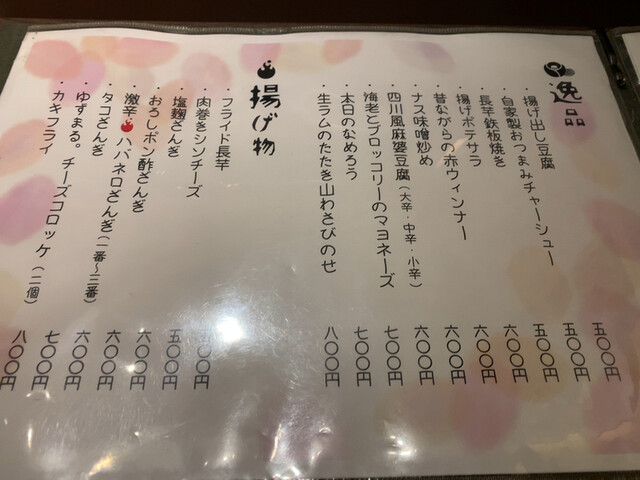 逸品
・揚げ出し豆腐
・自家製おつまみチャーシュー
・長芋鉄板焼き
・揚げポテサラ
・昔ながらの赤ウィンナー
・ナス味噌炒め
・四川風麻婆豆腐(大辛・中辛・小辛)
・海老とブロッコリーのマヨネーズ
・本日のなめろう
・生ラムのたたき山わさびのせ
五〇〇円
五〇〇円
五〇〇円
六〇〇円
六〇〇円
六〇〇円
六〇〇円
七〇〇円
七〇〇円
八〇〇円
揚げ物
・フライド長芋
・肉巻きシンチーズ
・塩麹ざんぎ
・おろしポン酢ざんぎ
・激辛ハバネロざんぎ(一番〜三番)
・タコざんぎ
・ゆずまる。チーズコロッケ(二個)
・カキフライ
〇〇円
五〇〇円
六〇〇円
六〇〇円
六〇〇円
七〇〇円
八〇〇円